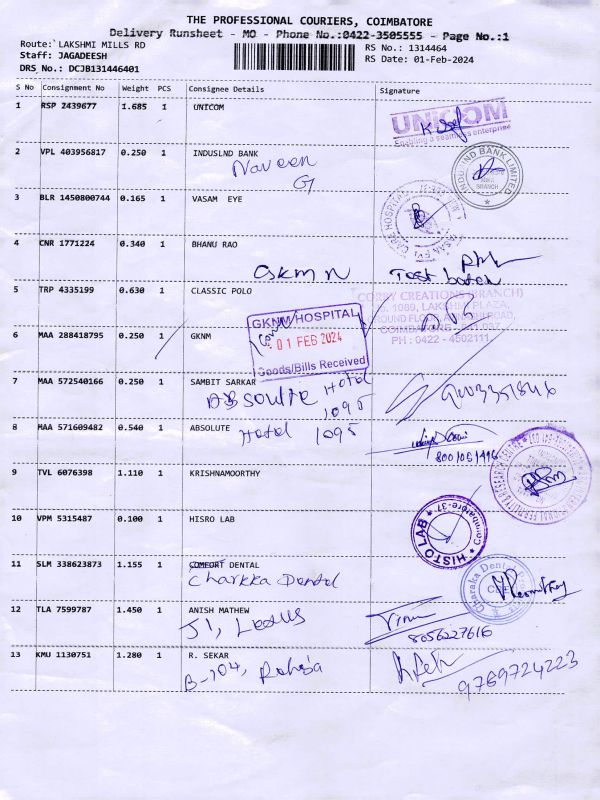 THE PROFESSIONAL COURIERS, COIMBATORE
Delivery Runsheet - MO - Phone No.:0422-3505555 - Page No.:1
Route: LAKSHMI MILLS RD
RS No.: 1314464
Staff: JAGADEESH
RS Date: 01-Feb-2024
DRS No.: DCJB131446401
S No Consignment No Weight PCS Consignee Details Signature
1 RSP 2439677 1.685 1 UNICOM
UNICOM
Enabling a seamless enterprise
2 VPL 403956817 0.250 1 INDUSLND BANK
Naveen
G
INDUSIND BANK LIMITED
BRANCH
3 BLR 1450800744 0.165 1 VASAM EYE
4 CNR 1771224 0.340 1 BHANU RAO
Gskm n
5 TRP 4335199 0.630 1 CLASSIC POLO
CREATIONS (BRANCH)
1089, LAKSHMI PLAZA,
COIMBATORE - 641 037
PH : 0422 - 4502111
6 MAA 288418795 0.250 1 GKNM
GKNM HOSPITAL
01 FEB 2024
Goods/Bills Received
7 MAA 572540166 0.250 1 SAMBIT SARKAR
Absolute Hotel
1095
8 MAA 571609482 0.540 1 ABSOLUTE
Hotel 1095
9 TVL 6076398 1.110 1 KRISHNAMOORTHY
10 VPM 5315487 0.100 1 HISRO LAB
HISTO LAB
Coimbatore-37
11 SLM 338623873 1.155 1 COMFORT DENTAL
Charkka Dental
Charaka Dental
12 TLA 7599787 1.450 1 ANISH MATHEW
J1, Lotus
8056227616
13 KMU 1130751 1.280 1 R. SEKAR
B-104, Raheja
9769724223